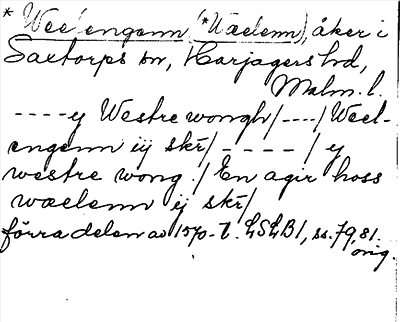 * Weelengenn (*Wæelenn), åker i
Saxtorps sn, Harjagers hd,
Malm. l.
---- y Westre wongh/----/Weel-
engenn iij skr/- - - - -/ y
westre wong./ En agir hoss
wæelenn ij skr/
förra delen av 1570-t. LSLB1, ss. 79, 81.
orig.